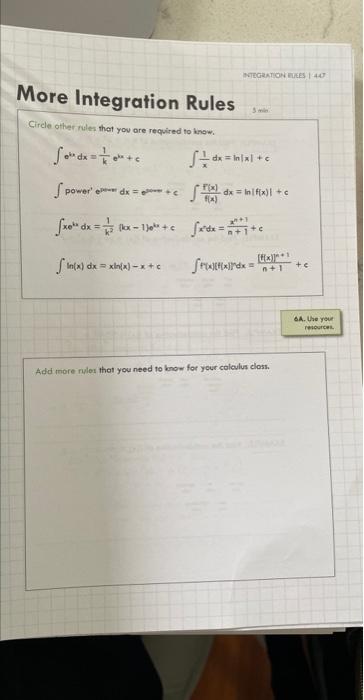 INTEGRATION RULES | 447
More Integration Rules 5 min
Circle other rules that you are required to know.
∫ eᵏˣ dx = 1/k eᵏˣ + c
∫ 1/x dx = ln|x| + c
∫ power' e^power dx = e^power + c
∫ f'(x)/f(x) dx = ln|f(x)| + c
∫ xeᵏˣ dx = 1/k² (kx – 1)eᵏˣ + c
∫ xⁿdx = xⁿ⁺¹/n + 1 + c
∫ ln(x) dx = xln(x) – x + c
∫ f'(x)[f(x)]ⁿdx = [f(x)]ⁿ⁺¹/n + 1 + c
6A. Use your
resources.
Add more rules that you need to know for your calculus class.